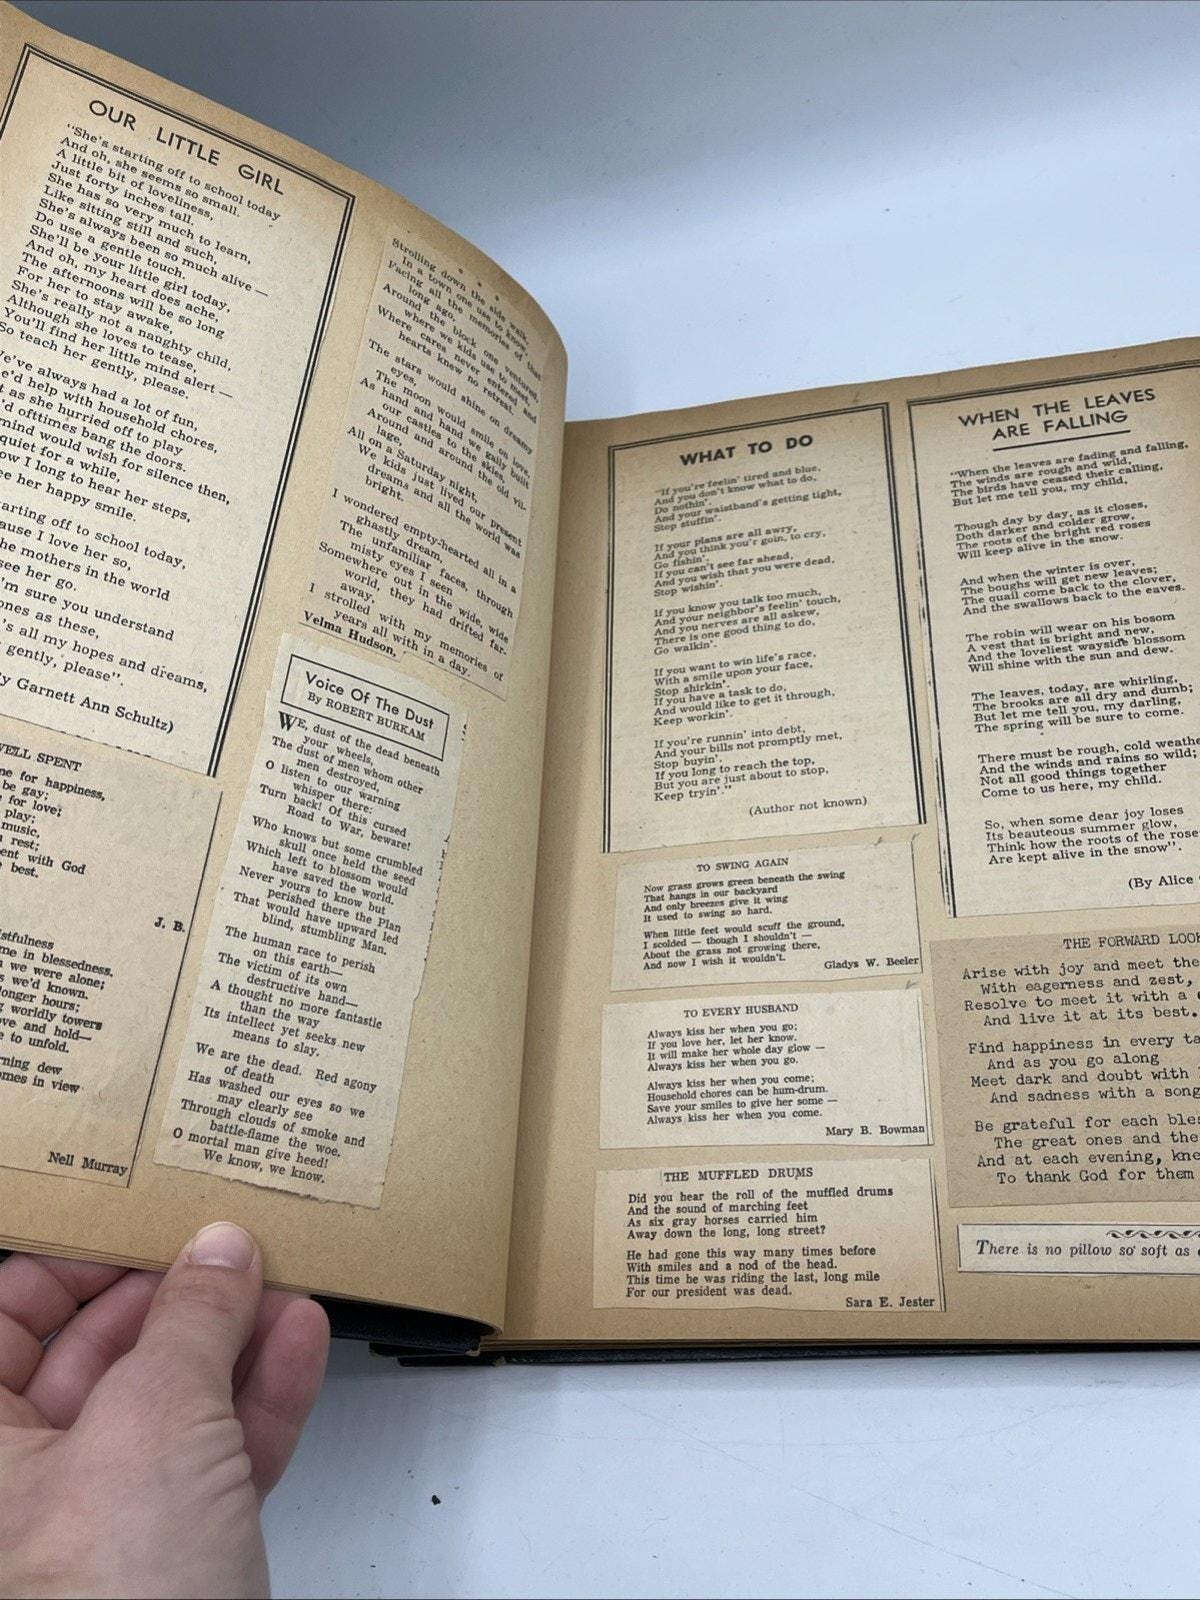 OUR LITTLE GIRL
"She's starting off to school today
And oh, she seems so small.
A little bit of loveliness,
Just forty inches tall.
She has so very much to learn,
Like sitting still and such,
She's always been so much alive —
Do use a gentle touch.
She'll be your little girl today,
And oh, my heart does ache,
The afternoons will be so long
For her to stay awake,
She's really not a naughty child,
Although she loves to tease,
You'll find her little mind alert —
So teach her gently, please.
We've always had a lot of fun,
e'd help with household chores,
t as she hurried off to play
'd ofttimes bang the doors.
mind would wish for silence then,
quiet for a while,
ow I long to hear her steps,
ee her happy smile.
arting off to school today,
ause I love her so,
he mothers in the world
see her go.
'm sure you understand
ones as these,
's all my hopes and dreams,
gently, please".
y Garnett Ann Schultz)
WELL SPENT
me for happiness,
be gay;
e for love;
play;
music,
rest;
ent with God
best.
J. B.
istfulness
me in blessedness.
we were alone;
s we'd known.
longer hours;
g worldly towers
ove and hold—
e to unfold.
rning dew
omes in view
Nell Murray
* * *
Strolling down the side walk,
In a town one use to know,
Facing all the memories of that
long ago.
Around the block one ventured,
where we kids use to meet,
Where cares never entered and
hearts knew no retreat.
The stars would shine on dreamy
eyes,
The moon would smile on love,
As hand and hand we gaily built
our castles to the skies,
Around and around the old vil-
lage,
All on a Saturday night,
We kids just lived our present
dreams and all the world was
bright.
I wondered empty-hearted all in a
ghastly dream,
The unfamiliar faces, through
misty eyes I seen
Somewhere out in the wide, wide
world, they had drifted far-
away,
I strolled with my memories of
years all with in a day.
Velma Hudson,
Voice Of The Dust
By ROBERT BURKAM
WE, dust of the dead beneath
your wheels,
The dust of men whom other
men destroyed,
O listen to our warning
whisper there:
Turn back! Of this cursed
Road to War, beware!
Who knows but some crumbled
skull once held the seed
Which left to blossom would
have saved the world.
Never yours to know but
perished there the Plan
That would have upward led
blind, stumbling Man.
The human race to perish
on this earth—
The victim of its own
destructive hand—
A thought no more fantastic
than the way
Its intellect yet seeks new
means to slay.
We are the dead. Red agony
of death
Has washed our eyes so we
may clearly see
Through clouds of smoke and
battle-flame the woe.
O mortal man give heed!
We know, we know.
WHAT TO DO
"If you're feelin' tired and blue,
And you don't know what to do,
Do nothin'.
And your waistband's getting tight,
Stop stuffin'.
If your plans are all awry,
And you think you'r goin, to cry,
Go fishin'.
If you can't see far ahead,
And you wish that you were dead,
Stop wishin'.
If you know you talk too much,
And your neighbor's feelin' touch,
And you nerves are all askew,
There is one good thing to do,
Go walkin'.
If you want to win life's race,
With a smile upon your face,
Stop shirkin'.
If you have a task to do,
And would like to get it through,
Keep workin'.
If you're runnin' into debt,
And your bills not promptly met,
Stop buyin'.
If you long to reach the top,
But you are just about to stop,
Keep tryin'."
(Author not known)
TO SWING AGAIN
Now grass grows green beneath the swing
That hangs in our backyard
And only breezes give it wing
It used to swing so hard.
When little feet would scuff the ground,
I scolded — though I shouldn't —
About the grass not growing there,
And now I wish it wouldn't.
Gladys W. Beeler
TO EVERY HUSBAND
Always kiss her when you go;
If you love her, let her know.
It will make her whole day glow —
Always kiss her when you go.
Always kiss her when you come;
Household chores can be hum-drum.
Save your smiles to give her some —
Always kiss her when you come.
Mary B. Bowman
THE MUFFLED DRUMS
Did you hear the roll of the muffled drums
And the sound of marching feet
As six gray horses carried him
Away down the long, long street?
He had gone this way many times before
With smiles and a nod of the head.
This time he was riding the last, long mile
For our president was dead.
Sara E. Jester
WHEN THE LEAVES
ARE FALLING
"When the leaves are fading and falling,
The winds are rough and wild,
The birds have ceased their calling,
But let me tell you, my child,
Though day by day, as it closes,
Doth darker and colder grow,
The roots of the bright red roses
Will keep alive in the snow.
And when the winter is over,
The boughs will get new leaves;
The quail come back to the clover,
And the swallows back to the eaves.
The robin will wear on his bosom
A vest that is bright and new,
And the loveliest wayside blossom
Will shine with the sun and dew.
The leaves, today, are whirling,
The brooks are all dry and dumb;
But let me tell you, my darling,
The spring will be sure to come.
There must be rough, cold weathe
And the winds and rains so wild;
Not all good things together
Come to us here, my child.
So, when some dear joy loses
Its beauteous summer glow,
Think how the roots of the rose
Are kept alive in the snow".
(By Alice
THE FORWARD LOOK
Arise with joy and meet the
With eagerness and zest,
Resolve to meet it with a
And live it at its best.
Find happiness in every ta
And as you go along
Meet dark and doubt with
And sadness with a song
Be grateful for each bles
The great ones and the
And at each evening, kne
To thank God for them
There is no pillow so soft as